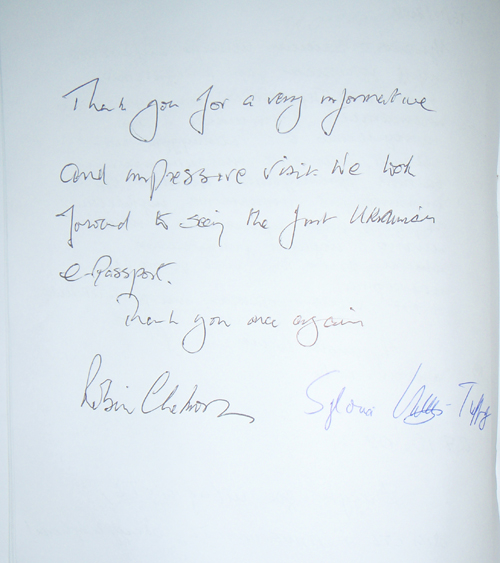 Thank you for a very informative
and impressive visit. We look
forward to seeing the first Ukrainian
e-Passport.
Thank you once again
Robin